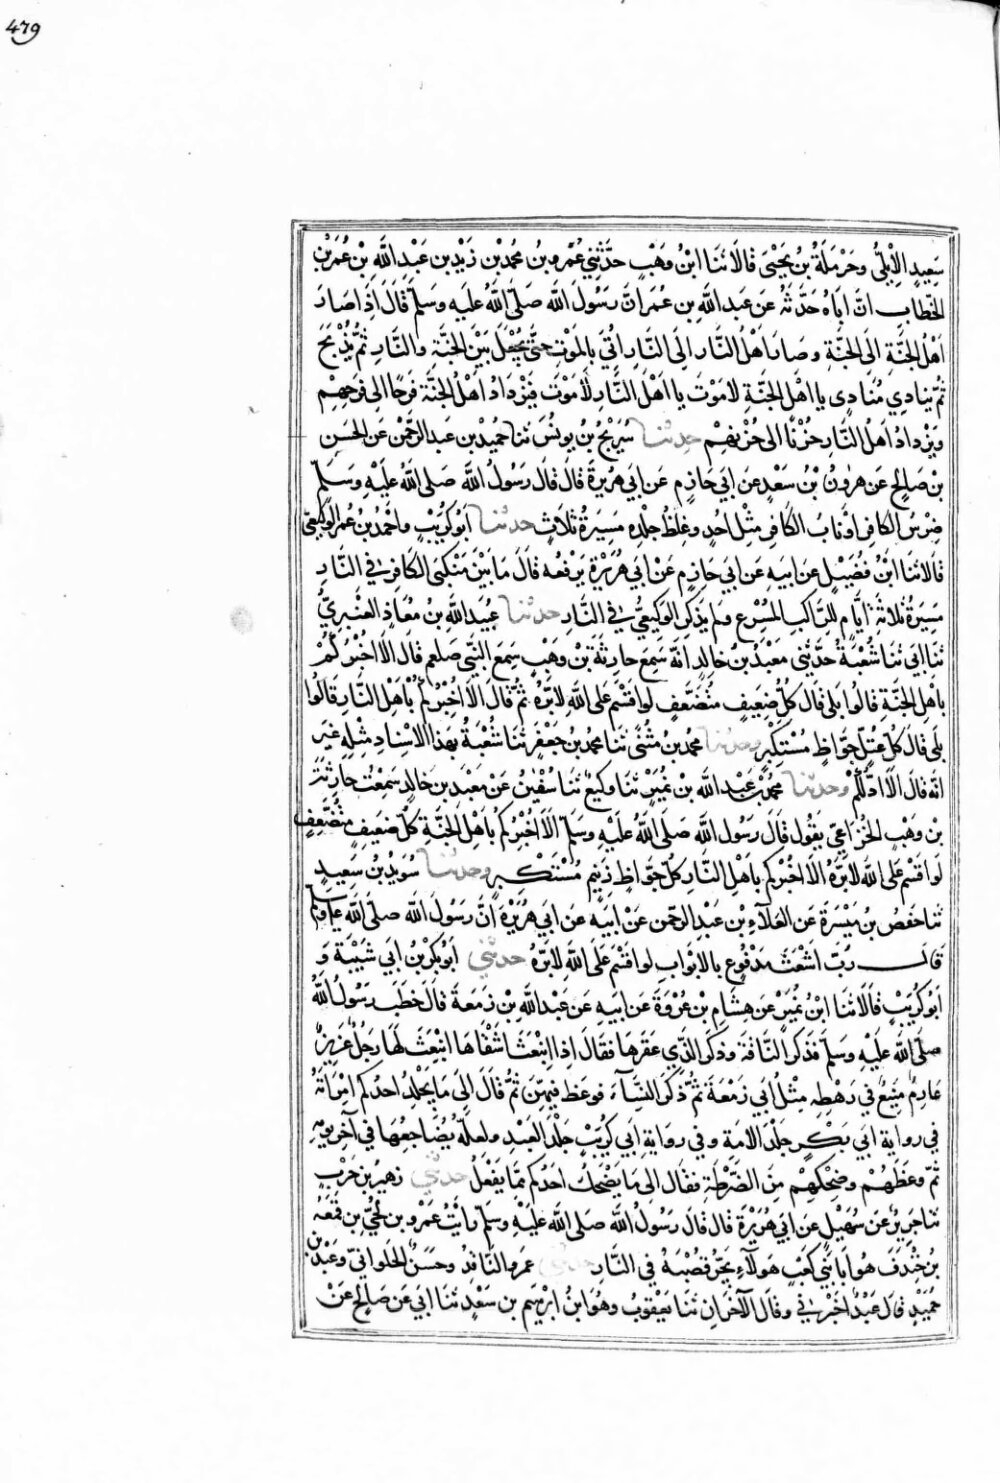 479
سَعِيدٍ الاَيْلِيُّ وحَرْمَلَةُ بْنُ يَحْيَى قالاَ ثَنَا ابْنُ وَهْبٍ حدَّثَنِي عُمَرُو بنُ مُحمدِ بْنِ زَيْدِ بنِ عَبْدِ اللَّهِ بْنِ عُمَرَ بْنِ
الخطاب انَّ اباهُ حَدَّثَهُ عَن عَبدِ اللَّهِ بنِ عُمَرَ انَّ رَسُولَ اللَّه صَلَّى اللَّهُ عَلَيهِ وسَلَّم قَالَ اذَا صَارَ
اَهْلُ الجَنَّةِ الَى الجَنَّةِ وصَارَ اَهْلُ النَّارِ الَى النَّارِ اُتِيَ بِالمَوْتِ حتَّى يُجْعَلَ بَيْنَ الجَنَّة والنَّارِ ثمَّ يُذْبَحُ
ثمّ يُنَادِي مُنَادِى يا اهلَ الجَنَّةِ لا مَوْتَ يا اهْلَ النَّارِ لا مَوْتَ فيَزْدَادُ اهْلُ الجَنَّة فَرحًا الى فَرَحِهِمْ
ويَزدادُ اَهلُ النَّارِ حُزْنًا الى حُزْنِهِمْ حدثنا سُرَيْجُ بْنُ يونُسَ ثنا حميدُ بن عبد الرّحمْنِ عَنِ الحَسَنِ
بن صَالحٍ عَن هرُونَ بْنِ سَعْدٍ عَن ابي حَازمٍ عَن ابي هُرَيرَةَ قال قال رَسُولُ اللَّه صَلى اللَّهُ عَليْهِ وَسَلَّم
ضِرْسُ الكافِرِ اوْ نابُ الكَافِرِ مِثْلُ اُحدٍ وغِلظُ جلْدِهِ مَسِيرَةُ ثَلاثٍ حدثنا اَبُو كُرَيْبٍ واحْمدُ بنُ عُمرَ الوَكِيعِى
قالا ثنا ابْنُ فُضَيْلٍ عَن ابيهِ عَن ابي حازمٍ عَنْ ابي هُرَيْرَةَ يَرْفعُهُ قَالَ مَا بَيْنَ مَنْكبَىِ الكَافِرِ فى النَّارِ
مَسِيرَةُ ثلاثَةِ ايَّامٍ للرَّاكبِ المُسْرِعِ ولم يَذكرِ الوَكيعِيُّ فى النَّارِ حدثنا عبُيدُ اللَّهِ بنُ مُعَاذٍ العنْبرِيُّ
ثنا ابي ثنا شُعْبَةُ حدَّثنى مَعْبَدُ بنُ خالدٍ انّهُ سَمِعَ حارثةَ بْنَ وهْبٍ سِمعَ النّبيَّ صلعم قال الا اُخْبرُكُمْ
باهلِ الجنَّةِ قالُوا بلَى قال كلُّ ضَعِيفٍ متضَعَّفٍ لو اقسَمَ عَلى اللَّهِ لابَرَّهُ ثمَّ قالَ الا اُخْبِرُكمْ باَهْلِ النَّارِ قالُوا
بلَى قال كلُّ عُتُلٍّ جَوَّاظٍ مُسْتكْبِرٍ وحدثنا محمدُ بنُ مُثَنَّى ثنا محمدُ بن جَعْفَرٍ ثنا شُعْبَةُ بهذا الاسْنادِ مثلِهِ غير
انّهُ قالَ الا ادُلُّكُمْ وحدثنا محمدُ بنُ عَبْدِ اللَّه بْنِ نُمَيْرٍ ثنا وكيعٌ ثنا سُفْينُ عَنْ مَعْبَدِ بن خَالدٍ سَمِعْتُ حارثةَ
بْن وَهْبٍ الخُزَاعِيَّ يَقُولُ قال رَسُولُ اللَّه صَلى اللَّهُ عَليْهِ وسَلَّم الا اُخْبرُكُم باهلِ الجَنَّةِ كلُّ ضَعيفٍ متَضَعَّفٍ
لَو اقسَم عَلَى اللَّه لابَرَّهُ الا اُخْبرُكم باَهْلِ النَّارِ كلُّ جَوَّاظٍ زَنِيمٍ مُسْتكْبِرٍ وحدثنا سُوَيدُ بْنُ سَعِيدٍ
ثنا حَفصُ بنُ مَيْسَرَةَ عَن العَلاَءِ بْنِ عَبْدِ الرّحمنِ عَنْ ابيهِ عَن ابي هُرَيْرَةَ انَّ رَسُولَ اللَّه صَلَّى اللَّه عَليه وسلم
قال رُبَّ اَشْعَثَ مَدْفُوعٍ بِالابْوَابِ لو اقسَمَ عَلَى اللَّهِ لابرّهُ حدثني اَبُو بَكرِ بْنُ ابي شَيْبَةَ و
اَبُو كُرَيْبٍ قالاَ ثنا ابْنُ نُمَيرٍ عَن هِشَامِ بْنِ عُرْوَةَ عَن ابيهِ عَن عَبْدِ اللَّهِ بْنِ زَمعَةَ قالَ خَطَبَ رَسُولُ اللَّهُ
صَلَّى اللَّه علَيْهِ وَسَلَّمَ فذَكرَ النَّاقَةَ وذَكرَ الَّذِي عَقرَهَا فقَالَ اذِ انْبَعَثَ اشْقَاهَا انْبَعَثَ لَهَا رجُلٌ عَزِيزٌ
عَارِمٌ مَنِيعٌ في رَهْطِهِ مِثْلُ ابي زَمْعَةَ ثمَّ ذكرَ النِّسَآءَ فَوعَظ فيهِنّ ثمَّ قالَ الى مَا يَجْلِدُ احَدُكُم امْرَاتَهُ
فى رواية ابي بَكْرٍ جَلْدَ الامَةِ وفى رواية ابي كُرَيْبٍ جَلْدَ العَبدِ ولعلّه يُضَاجِعُها في آخرِ يومِهِ
ثمَّ وعَظَهُمْ فى ضحِكهمْ مِنَ الضَّرْطَةِ فقَال الى مَا يَضْحكُ احَدُكم مما يَفْعَلُ حدثني زهيرُ بن حَرْبٍ
ثنا جَرِيرٌ عَن سُهَيلٍ عَن ابيهِ عن ابي هُرَيْرَةَ قالَ قَالَ رَسُولُ اللَّه صَلى اللَّه عَلَيْهِ وسَلّم رَايْتُ عَمْرَو بنَ لُحَىِّ بنِ قَمَعَةَ
بْنِ خنْدَفَ هُو ابَا بَني كَعْبٍ هَؤلاَءِ يَجُرُّ قُصْبَهُ فِي النَّارِ حدثني عَمرو النَّاقدُ وحَسَنٌ الحُلوانيُّ وعَبْدُ بْنُ
حُمَيْدٍ قال عَبْدٌ اخْبَرَنى وقالَ الآخَرَانِ ثنا يَعقوبُ وهُوَ ابنُ ابرهيمَ بن سَعدٍ ثنا ابي عَن صَالِحٍ عَنْ